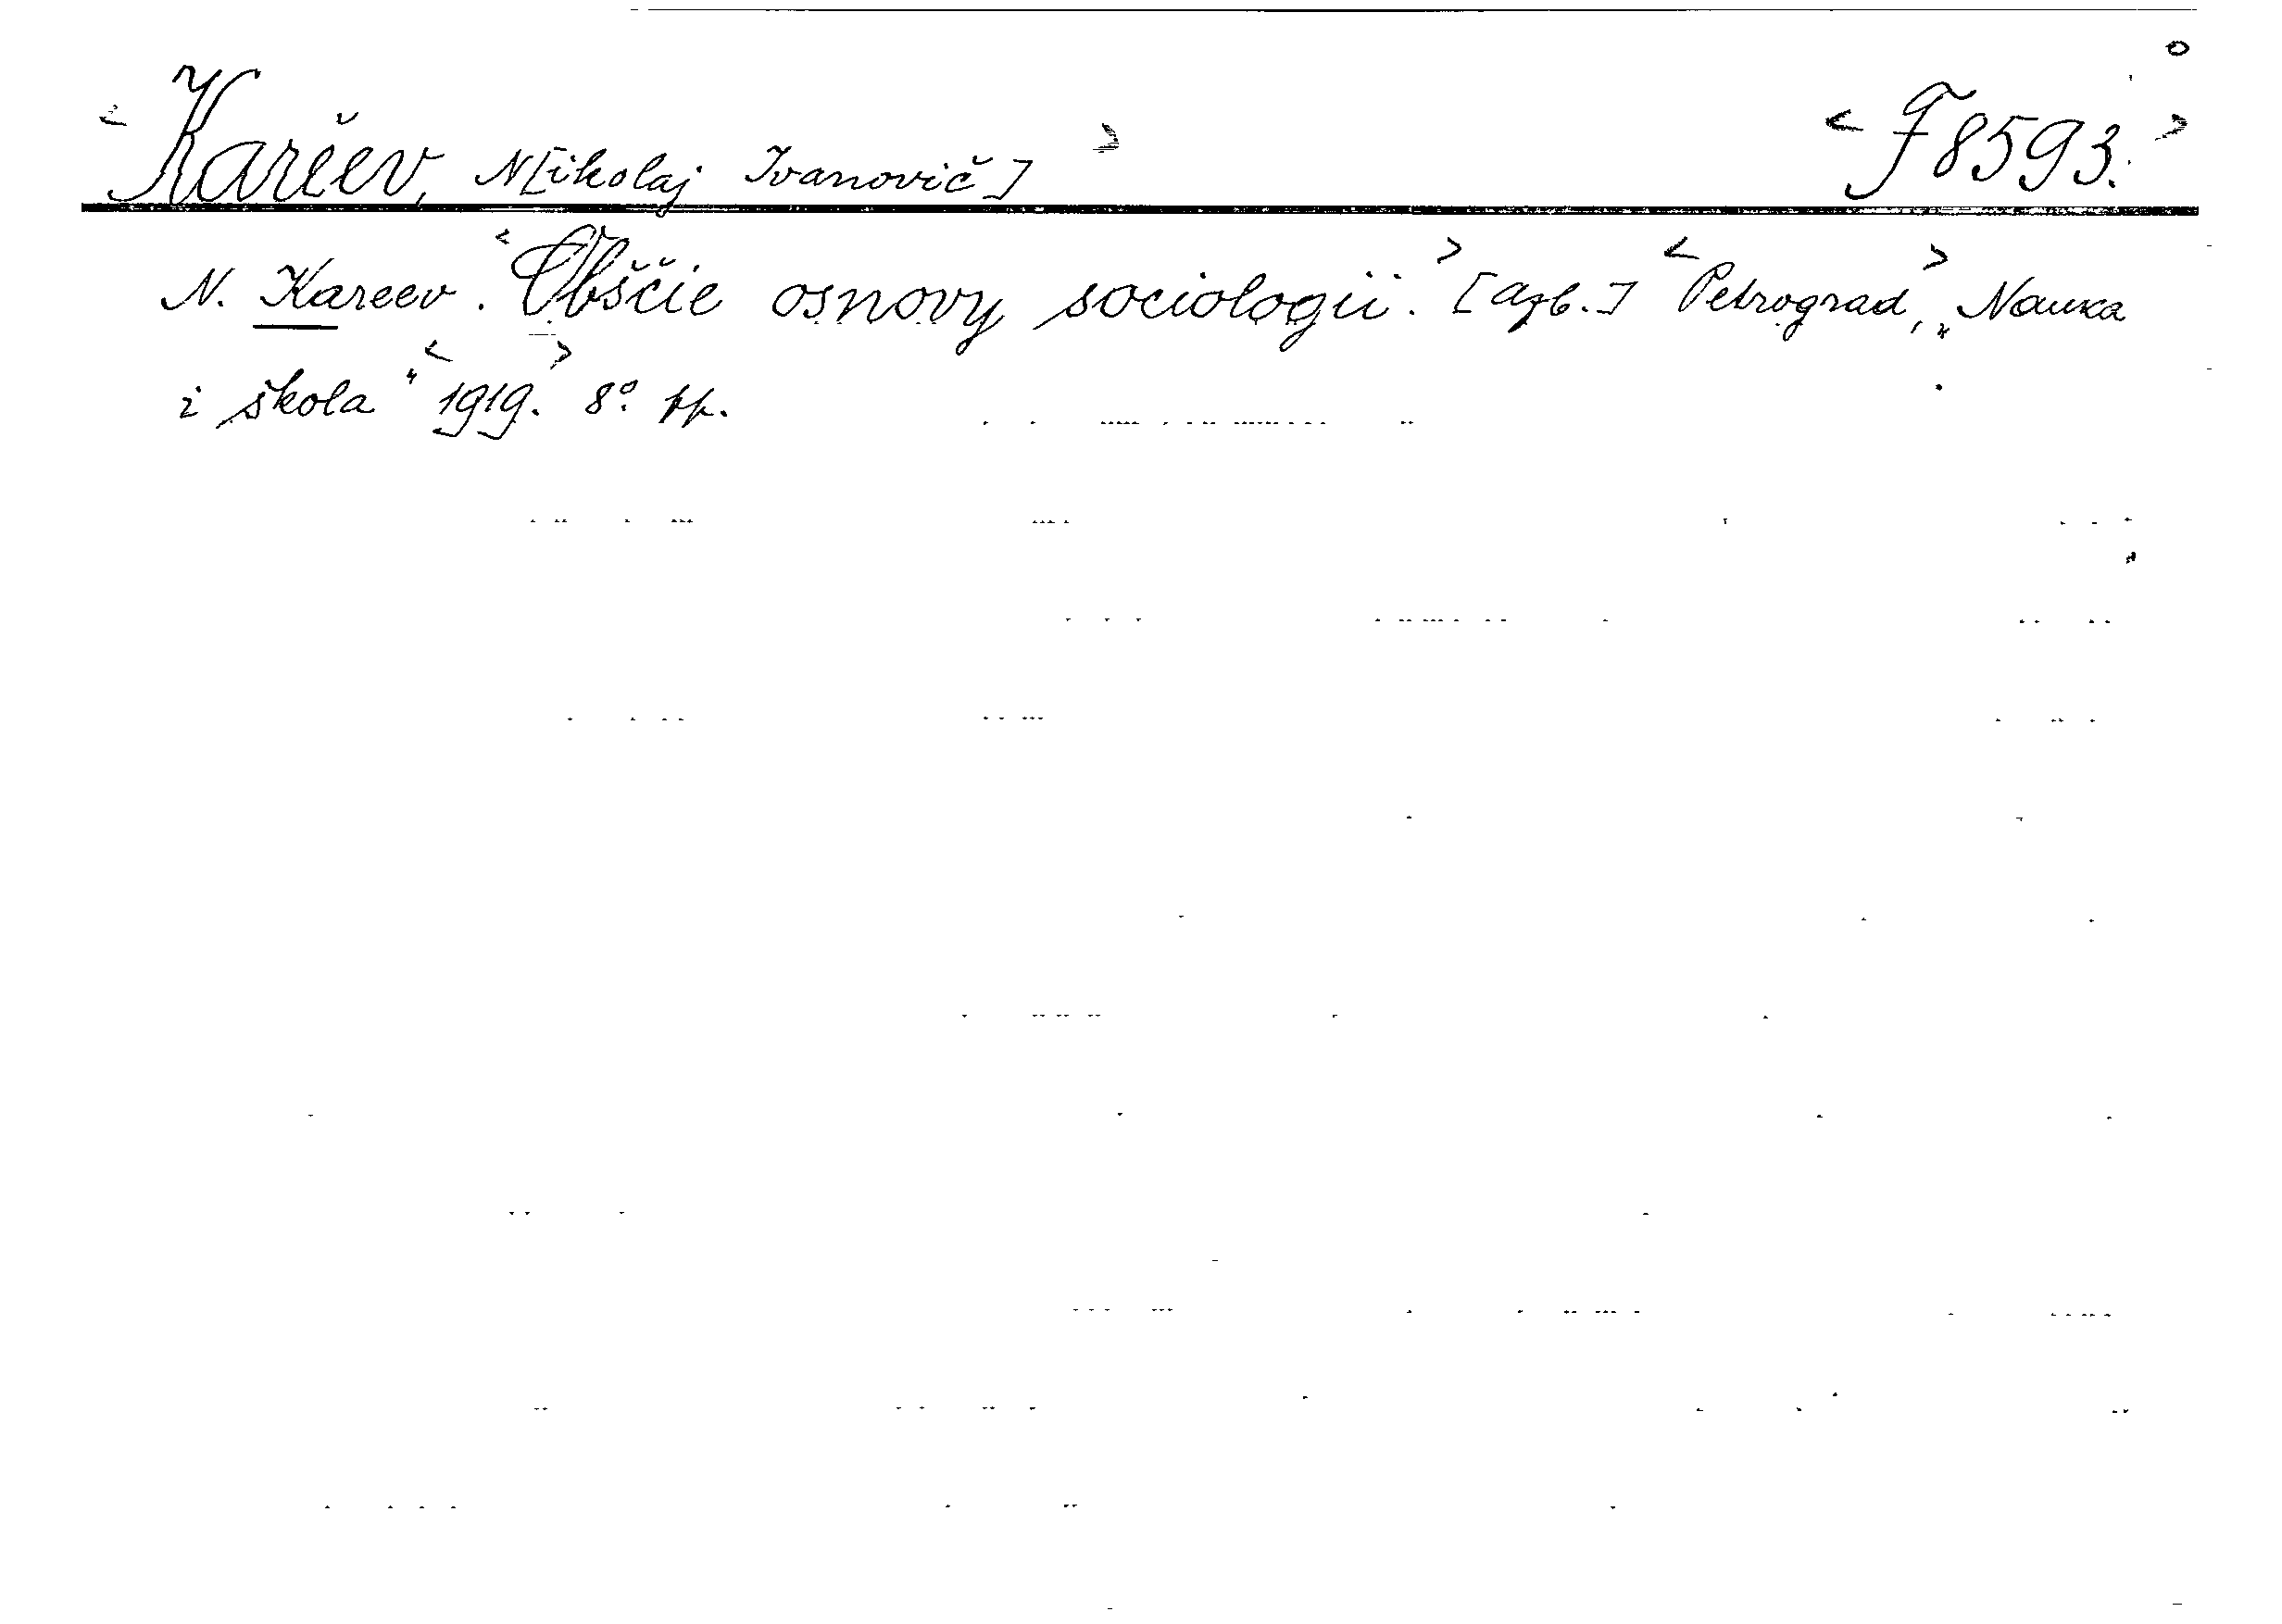 < Karěev, N[ikolaj Ivanovič] > < F 8593. >
N. Kareev. < Obščie osnovy sociologii. > [azb.] < Petrograd, > „Nauka
i škola“ < 1919. > 8° pp.